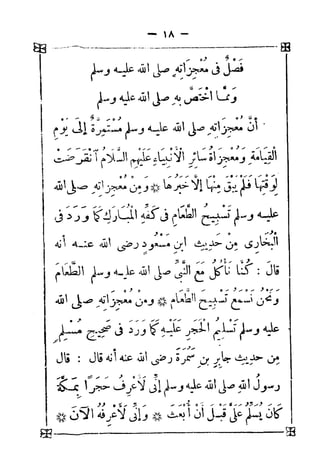 — ١٨ —
فَصْلٌ فى مُعْجِزَاتِهِ صلى الله عليه وسلم
وَمِمَّا اخْتَصَّ بِهِ صلى الله عليه وسلم
أَنَّ مُعْجِزَاتِهِ صلى الله عليه وسلم مُسْتَمِرَّةٌ إِلَى يَوْمِ
الْقِيَامَةِ وَمُعْجِزَاةُ سَائِرِ الْأَنْبِيَاءِ عَلَيْهِمِ السَّلَامُ انْقَرَضَتْ
لِوَقْتِهَا فَلَمْ يَبْقَ مِنْهَا إِلَّا خَبَرُهَا * وَمِنْ مُعْجِزَاتِهِ صلى الله
عليه وسلم تَسْبِيحُ الطَّعَامِ فِى كَفِّهِ الْمُبَارَكِ كَمَا وَرَدَ فى
الْبُخَارِى مِنْ حَدِيثِ ابنِ مَسْعُودٍ رضى الله عنه أنه
قَالَ : كُنَّا نَأْكُلُ مَعَ النَّبِىِّ صلى الله عليه وسلم الطَّعَامَ
وَنَحْنُ نَسْمَعُ تَسْبِيحَ الطَّعَامِ * ومِنْ مُعْجِزَاتِهِ صلى الله
عليه وسلم تَسْلِيمُ الْحَجَرِ عَلَيْهِ كَمَا وَرَدَ فى صَحِيحِ مُسْلِمٍ
مِن حَدِيثِ جَابِرِ بنِ سَمُرَةَ رضى الله عنه أنه قال : قال
رسولُ اللهِ صلى الله عليه وسلم إِنِّى لَأَعْرِفُ حَجَرًا بِمَكَّةَ
كَانَ يُسَلِّمُ عَلَىَّ قَبْلَ أَنْ أُبْعَثَ * وَإِنِّى لَأَعْرِفُهُ الْآنَ *